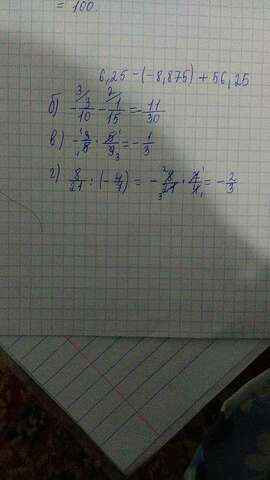 = 100.
6,25 - (-8,875) + 56,25
б) -3/10 - 1/15 = -11/30
в) -3/5 · 5/9 = -1/3
г) 8/21 : (-4/7) = -8/21 · 7/4 = -2/3